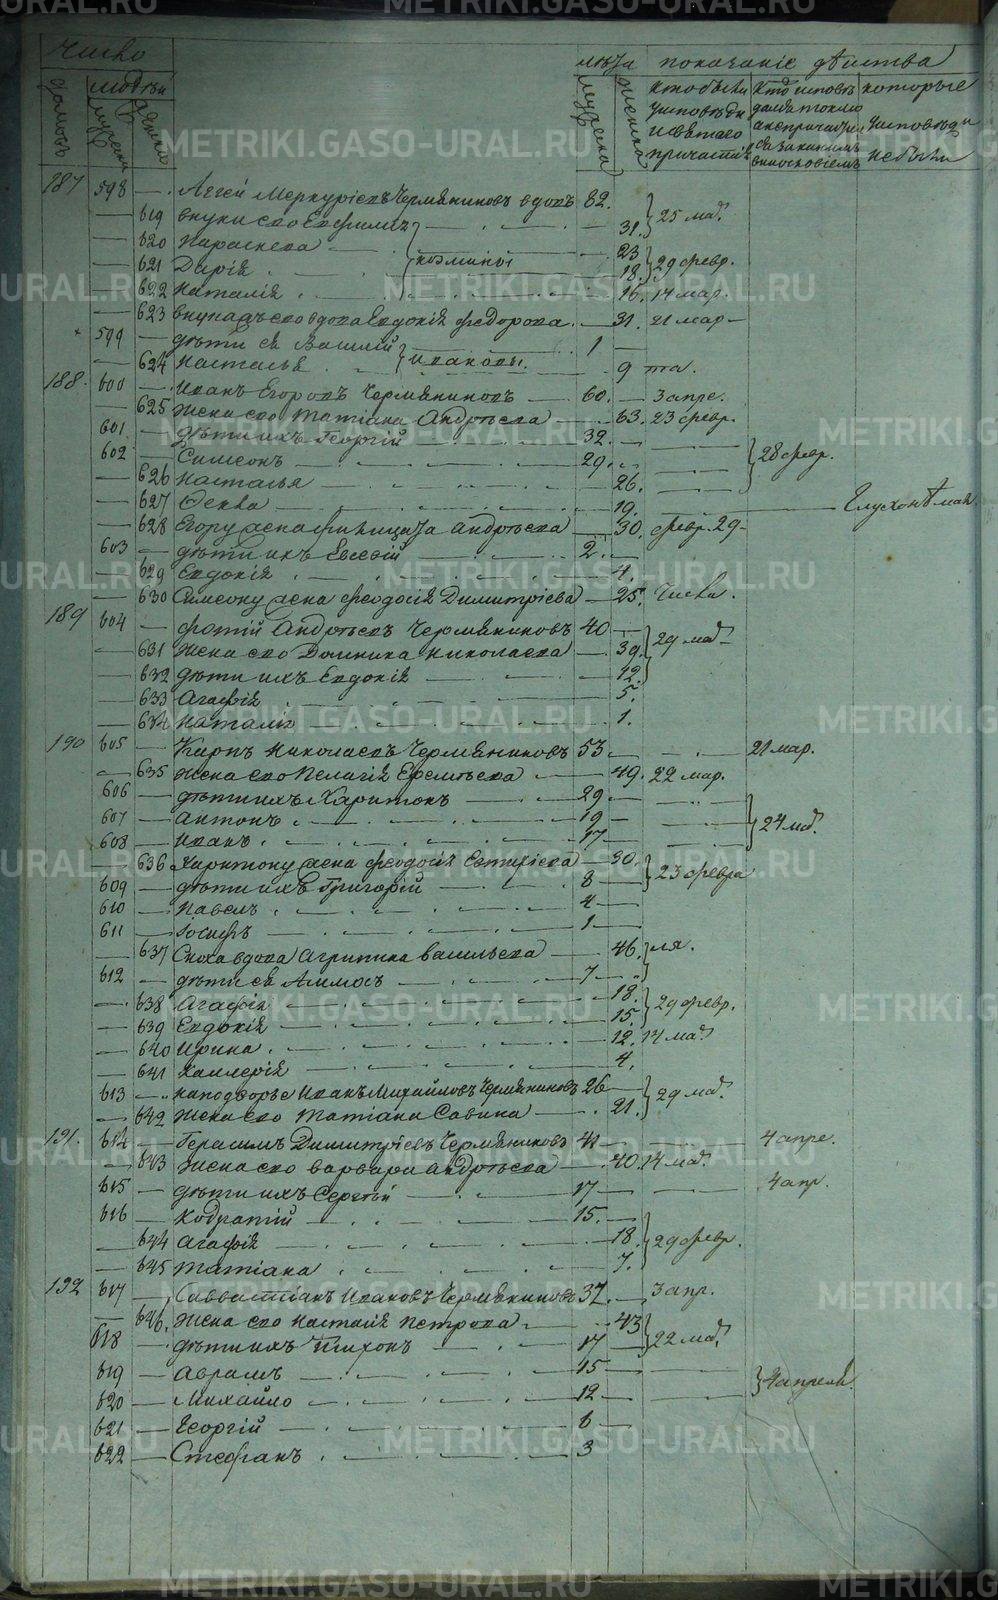 число
лѣта
показаніе дѣйства
домовъ
людей
мужеска
женска
мужеска
женска
кто были у исповѣди и святаго причастія
кто исповѣдались токмо а не причастились и за какимъ винословіемъ
которые у исповѣди не были
187 598 — Аггей Меркуріевъ Чермяниновъ вдовъ 82.
— 619 внуки его Евфимія 31. } 25 мар.
— 620 Параскева — 23
— 621 Дарія } Козмины — 18. } 29 февр.
— 622 Наталія 16. 14 мар.
— 623 внука его вдова Евдокія Федорова — 31. 21 мар —
599 — дѣти ея Василій 1 —
— 624 Насталья } Ивановы 9
188. 600 — Иванъ Егоровъ Чермяниновъ — 60. — 3 апре.
— 625 жена его Татіана Андреева — 63. 23 февр.
601 — дѣти ихъ Георгій 32. —
602 — Симеонъ — 29. } 28 февр.
— 626 Насталья 26.
— 627 Ѳекла — 19. — Глухонѣмая
— 628 Егору жена Филицата Андреева 30. февр. 29 —
603 — дѣти ихъ Евсевій — 2 —
— 629 Евдокія 4.
— 630 Симеону жена Феодосія Димитріева — 25. числа.
189 604 — Фотій Андреевъ Чермяниновъ 40 —
— 631 жена его Домника Николаева — 39. } 29 мар —
— 632 дѣти ихъ Евдокія — 12.
— 633 Агафія 5.
— 634 Наталія 1.
190 605 — Карпъ Николаевъ Чермяниновъ 53 — 21 мар.
— 635 жена его Пелагія Еремѣева — 49. 22 мар.
606 — дѣти ихъ Харитонъ — 29 —
607 — Антонъ 19 — } 24 мар.
608 — Иванъ 17 —
— 636 Харитону жена Феодосія Евтихіева — 30. } 23 февра
609 — дѣти ихъ Григорій — 8 —
610 — Павелъ 4 —
611 — Іосифъ 1 —
— 637 Сноха вдова Агрипина Васильева — 46. } ля.
612 — дѣти ея Аммосъ — 7 —
— 638 Агафія 18.
— 639 Евдокія 15. } 29 февр.
— 640 Ирина 12. 14 мар.
— 641 Калерія 4.
613 — на подворье Иванъ Михайловъ Чермяниновъ 26 — } 29 мар.
— 642 жена его Татіана Савина — 21.
191. 614 — Герасимъ Димитріевъ Чермяниновъ 41 — 4 апре.
— 643 жена его Варвара Андреева — 40. 14 мар.
615 — дѣти ихъ Сергѣй — 17 — 4 апр.
616 — Кодратій 15. —
— 644 Агафія — 18. } 29 февр.
— 645 Татіана 7.
192 617 — Савватіанъ Ивановъ Чермяниновъ 37. — 3 апр.
— 646. жена его Насталія Петрова 43
618 — дѣти ихъ Тихонъ — 17 — } 22 мар.
619 — Аврамъ — 15 —
620 — Михайло 12 — } 4 апреля.
621 — Георгій — 6 —
622 — Стефанъ 3
METRIKI.GASO-URAL.RU